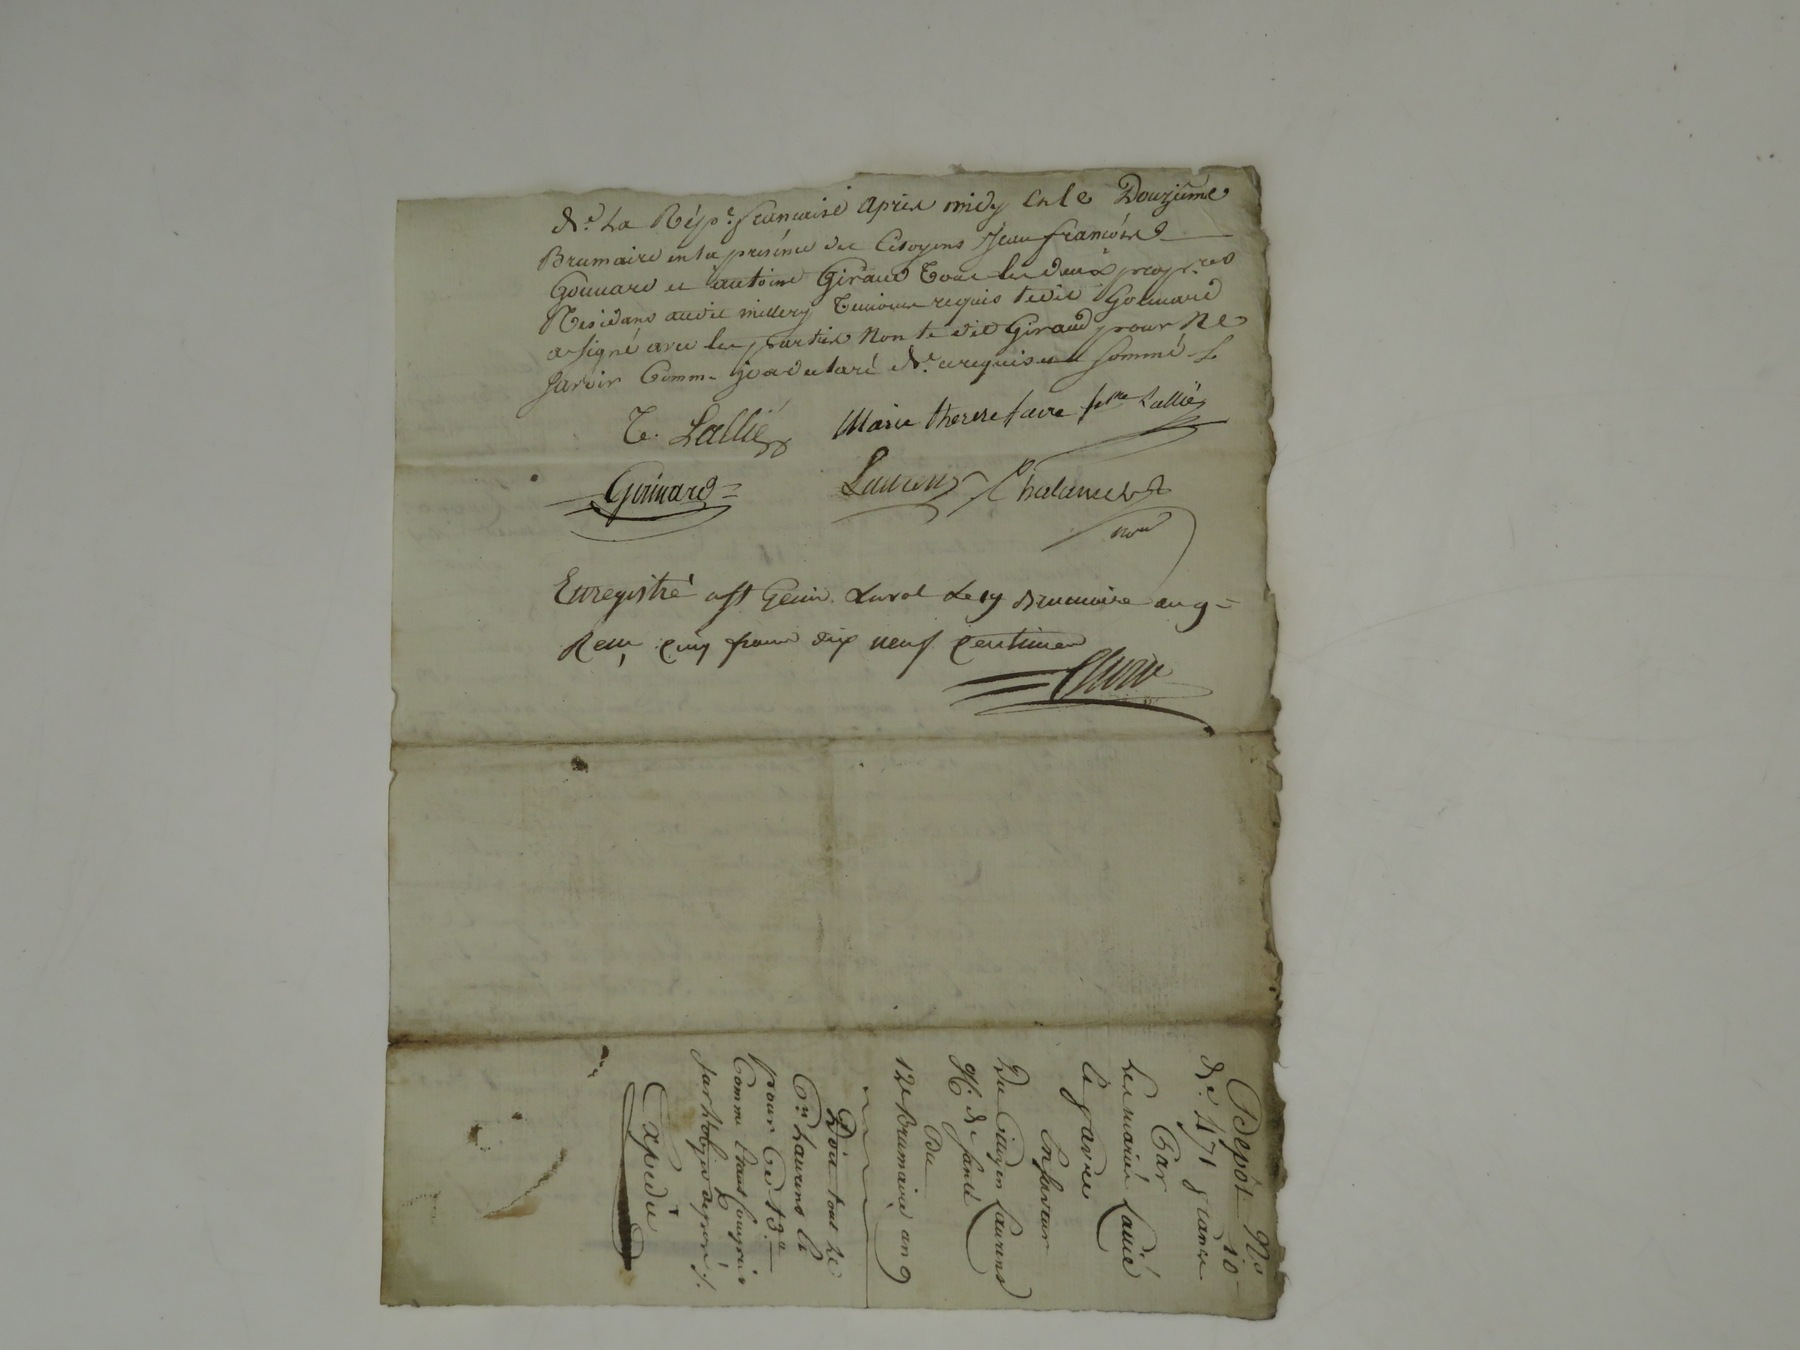 de La Répe. francaise après midy & le Douzième
Brumaire en la présence des Citoyens Jean françois
Gouvard et antoine Giraud tous les deux propres
Residans audit millery Temoins requis ledit Gouvard
a signé avec les parties Non le dit Giraud pour Ne
Savoir Comme il a declaré de ce requis et Sommé
T. Lallié Marie therese favre fme Lallié
Gouvard Laurens Chalanc
nore
Enregistré a st Genis Laval Le 19 Brumaire an 9 =
Reçu cinq francs dix neuf centimes
Dépôt No 10
de 471 francs
Par
Les mariés Lallié
Le favre
En faveur
Du Citoyen Laurens
Of. de santé
Du
12 e Brumaire an 9
Doit tout le
Cen Laurens
pour Ce
Expédié